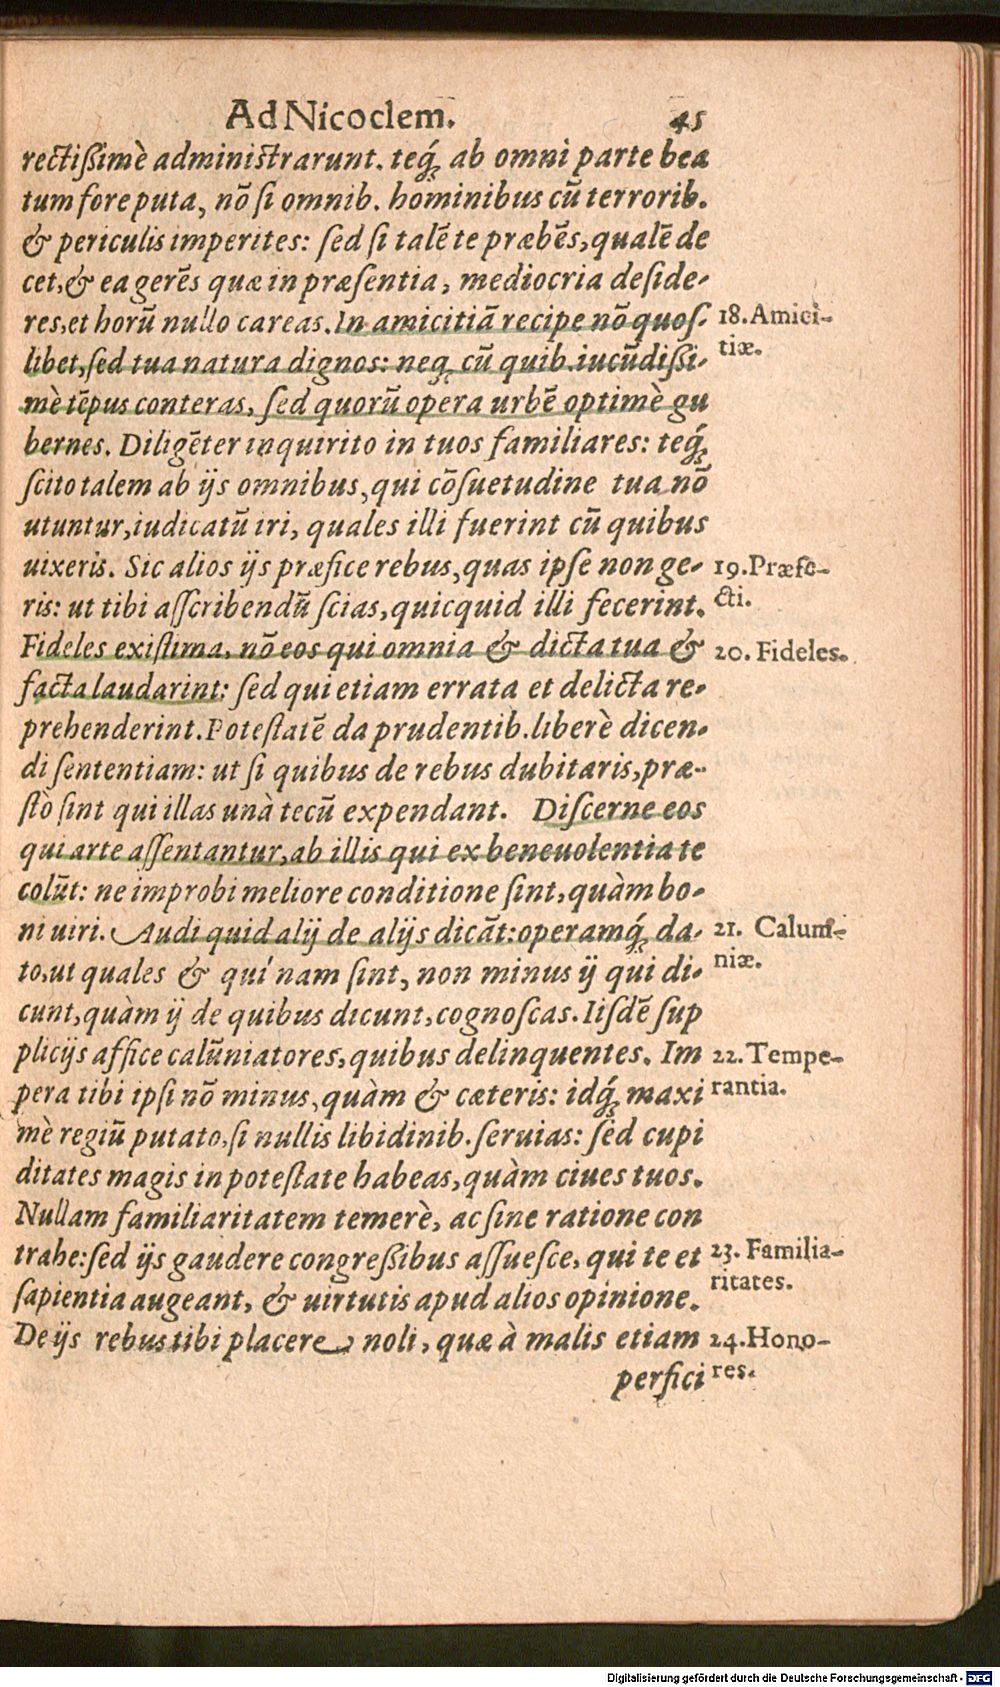 Ad Nicoclem. 45
rectißimè administrarunt. teq́; ab omni parte bea
tum fore puta, nō si omnib. hominibus cū terrorib.
& periculis imperites: sed si talē te præbēs, qualē de
cet, & ea gerēs quæ in præsentia, mediocria deside-
res, et horū nullo careas. In amicitiā recipe nō quos-
libet, sed tua natura dignos: neq; cū quib. iucūdißi-
mè tēpus conteras, sed quorū opera urbē optimè gu
bernes. Diligēter inquirito in tuos familiares: teq́;
scito talem ab ijs omnibus, qui cōsuetudine tua nō
utuntur, iudicatū iri, quales illi fuerint cū quibus
uixeris. Sic alios ijs præfice rebus, quas ipse non ge-
ris: ut tibi asscribendū scias, quicquid illi fecerint.
Fideles existima, nō eos qui omnia & dicta tua &
facta laudarint: sed qui etiam errata et delicta re-
prehenderint. Potestatē da prudentib. liberè dicen-
di sententiam: ut si quibus de rebus dubitaris, præ-
stò sint qui illas unà tecū expendant. Discerne eos
qui arte assentantur, ab illis qui ex beneuolentia te
colūt: ne improbi meliore conditione sint, quàm bo-
ni uiri. Audi quid alij de alijs dicāt: operamq́; da-
to, ut quales & qui nam sint, non minus ij qui di-
cunt, quàm ij de quibus dicunt, cognoscas. Iisdē sup
plicijs affice calūniatores, quibus delinquentes. Im
pera tibi ipsi nō minus, quàm & cæteris: idq́; maxi
mè regiū putato, si nullis libidinib. seruias: sed cupi
ditates magis in potestate habeas, quàm ciues tuos.
Nullam familiaritatem temerè, ac sine ratione con
trahe: sed ijs gaudere congreßibus assuesce, qui te et
sapientia augeant, & uirtutis apud alios opinione.
De ijs rebus tibi placere noli, quæ à malis etiam
perfici
18. Amici-
tiæ.
19. Præfe-
cti.
20. Fideles.
21. Calum-
niæ.
22. Tempe-
rantia.
23. Familia-
ritates.
24. Hono-
res.
Digitalisierung gefördert durch die Deutsche Forschungsgemeinschaft - DFG